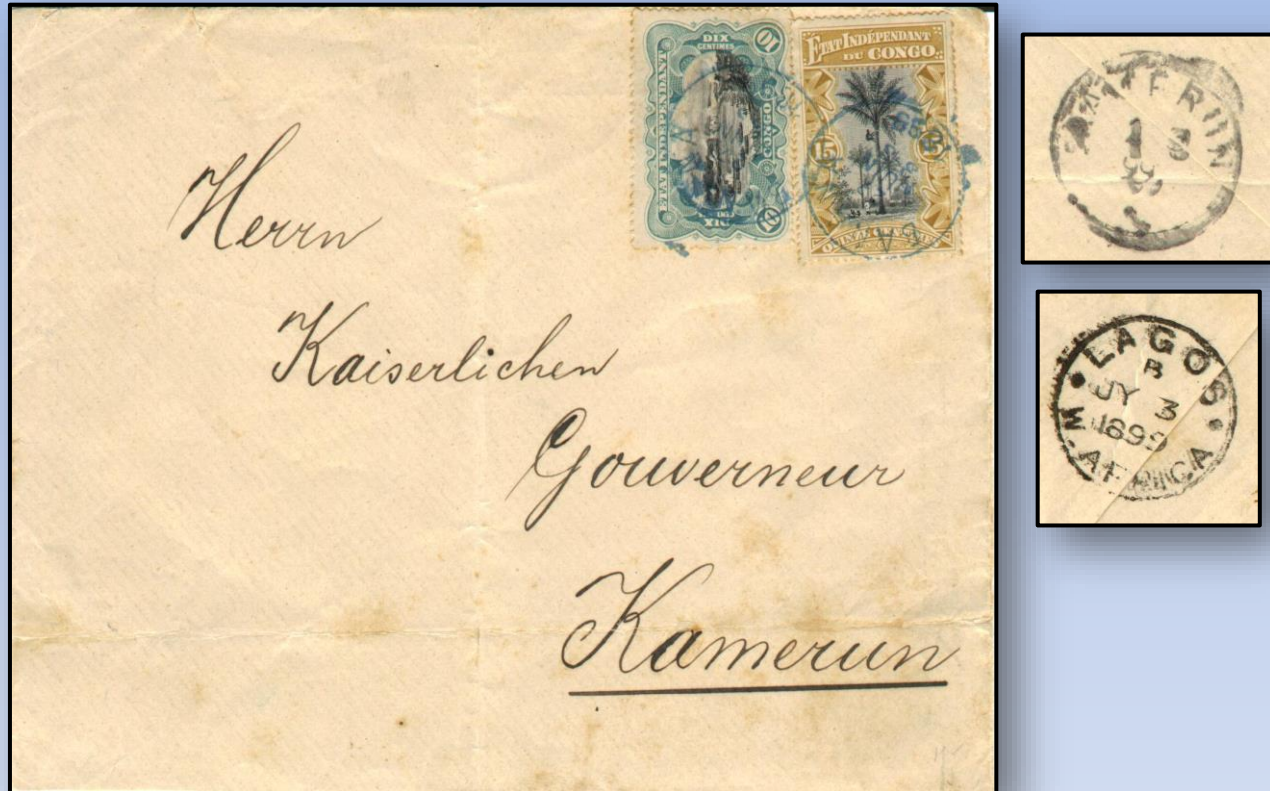 DIX
CENTIMES
10
ETAT INDÉPENDANT
DU CONGO
10
DIX
ETAT INDÉPENDANT
DU CONGO
15
15
Herrn
Kaiserlichen
Gouverneur
Kamerun
KAMERUN
LAGOS
B
JY 3
1899
W. AFRICA